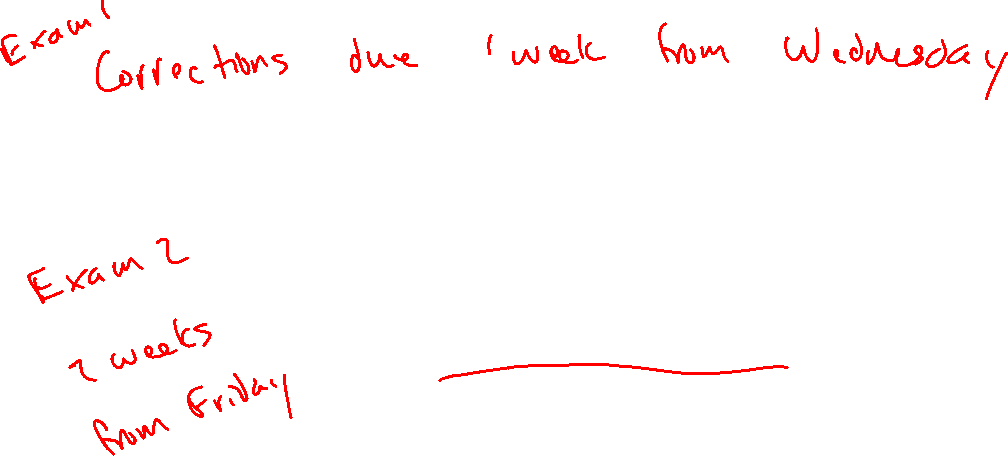 Exam 1
Corrections due 1 week from Wednesday
Exam 2
2 weeks
from Friday